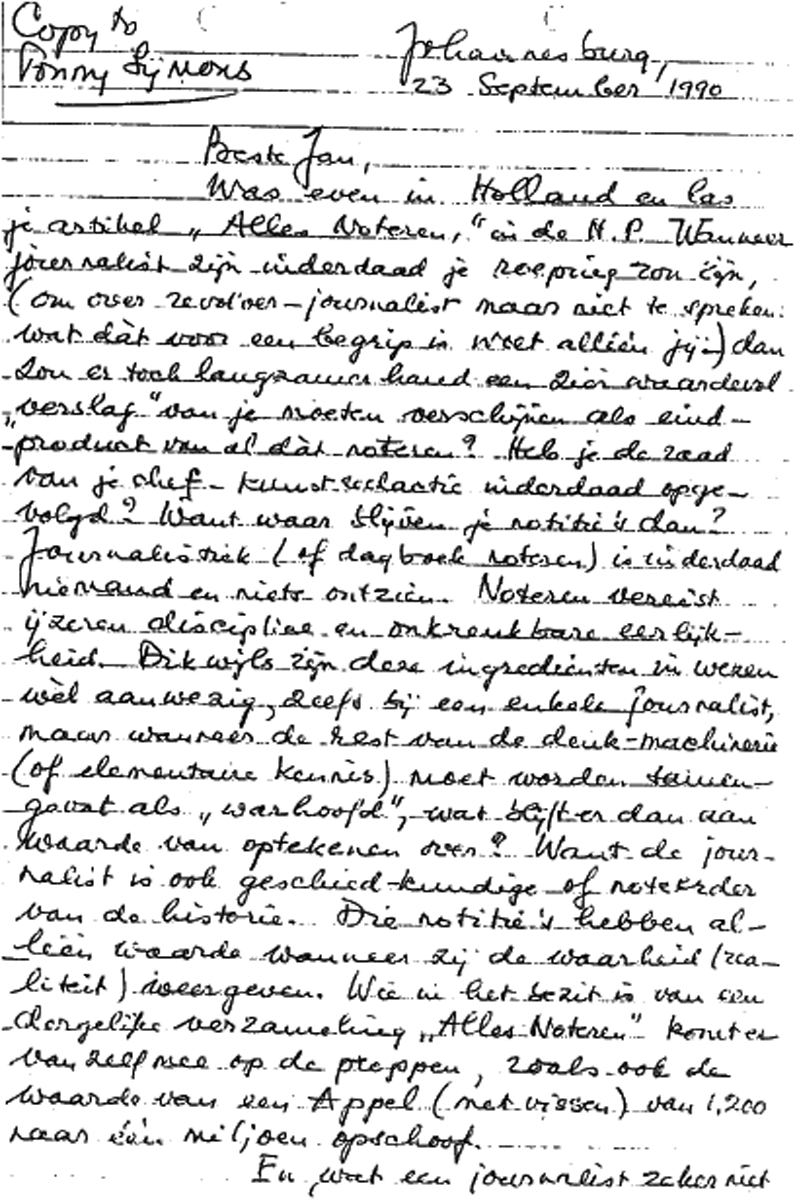 Copy to
Johannesburg,
Ponny Sijmons
23 September 1990
Beste Jan,
Was even in Holland en las
je artikel „Alles Noteren,“ in de H.P. Wanneer
journalist zijn inderdaad je roeping zou zijn,
(om over revolver-journalist maar niet te spreken:
wat dàt voor een begrip is weet alléén jij-) dan
zou er toch langzamerhand een zéér waardevol
„verslag“ van je moeten verschijnen als eind-
product van al dàt noteren? Heb je de raad
van je chef-kunst-redactie inderdaad opge-
volgd? Want waar blijven je notitie's dan?
Journalistiek (of dagboek noteren) is inderdaad
niemand en niets ontzien. Noteren vereist
ijzeren discipline en onkreukbare eerlijk-
heid. Dikwijls zijn deze ingrediënten in wezen
wèl aanwezig, zelfs bij een enkele journalist,
maar wanneer de rest van de denk-machinerie
(of elementaire kennis) moet worden samen-
gevat als „warhoofd“, wat blijft er dan aan
waarde van optekenen over? Want de jour-
nalist is ook geschied-kundige of noteerder
van de historie. Die notitie's hebben al-
léén waarde wanneer zij de waarheid (rea-
liteit) weergeven. Wie in het bezit is van een
dergelijke verzameling „Alles Noteren“ komt er
vanzelf mee op de proppen, zoals ook de
waarde van een Appel (met vissen) van 1,200
naar één miljoen opschoof.
En wat een journalist zeker niet